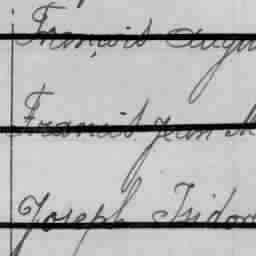 François Augu
Francis Jean M
Joseph Isidor